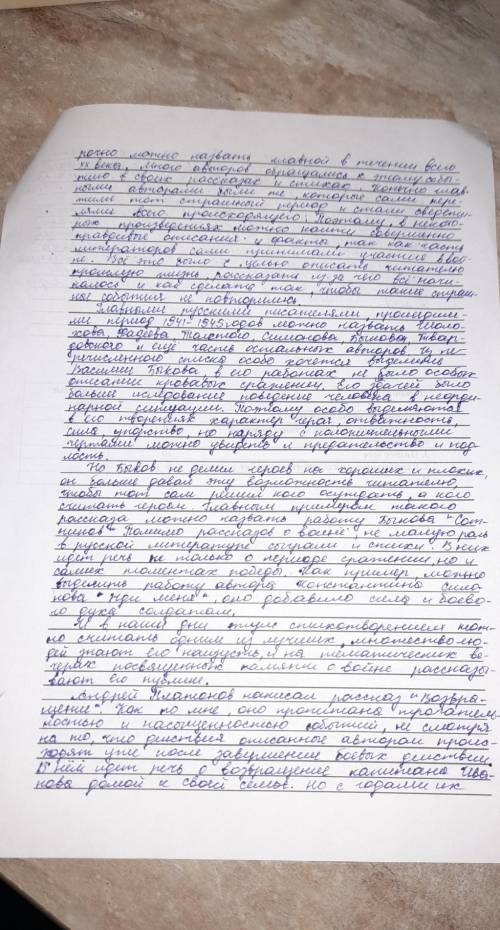 рочно можно назвать главной в течении всего
XX века. Много авторов обращались к этому собы-
тию в своих рассказах и стихах. Конечно глав-
ными авторами были те, которые сами пере-
жили тот страшный период и стали свидете-
лями всего происходящего. Поэтому, в некото-
рых произведениях можно найти совершенно
правдивые описания и факты, так как часть
литераторов сами принимали участие в вой-
не. Все это было с целью описать читателю
прошлую жизнь, рассказать из-за чего всё начи-
налось и как сделать так, чтобы такие страш-
ные события не повторились.
Главными русскими писателями, прошедши-
ми период 1941-1945 годов можно назвать Шоло-
хова, Фадеева Толстого, Симонова, Быкова, Твар-
довского и ещё часть остальных авторов. Из пе-
речисленного списка особо хочется выделить
Василия Быкова, в его работах не было особых
описании кровавых сражении. Его задачей было
больше исследование поведение человека в неорди-
нарной ситуации. Поэтому особо выделяются
в его творениях характер героя, отважность,
сила, упорство, но наряду с положительными
чертами можно увидеть и предательство и под-
лость.
Но Быков не делил героев на хороших и плохих,
он больше давал эту возможность читателю,
чтобы тот сам решил кого осуждать, а кого
считать героем. Главным примером такого
рассказа можно назвать работу Быкова "Сот-
ников" Помимо рассказов о войне не малую роль
в русской литературе сыграли и стихи. В них
идет речь не только о периоде сражении, но и
самих моментах победы. Как пример можно
выделить работу автора Константина Симо-
нова "Жди меня", оно добавило силы и боево-
го духа солдатам.
И в наши дни этим стихотворением мож-
но считать одним из лучших, множество лю-
дей знают его наизусть, и на тематических ве-
черах посвященных памяти о войне рассказы-
вают его публике.
Андрей Платонов написал рассказ "Возвра-
щение". Как по мне, оно пропитана трогатель-
ностью и насыщенностью событий, не смотря
на то, что действия описанные автором проис-
ходят уже после завершения боевых действии.
В нём идет речь о возвращение капитана Ива-
нова домой к своей семье. Но с годами их